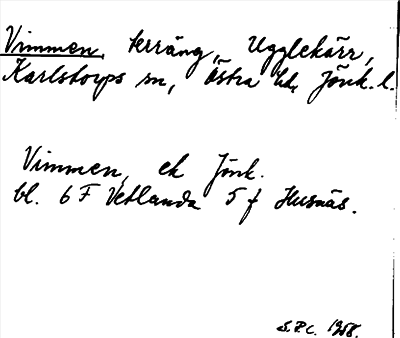 Vimmen, terräng, Ugglekärr,
Karlstorps sn, Östra hd, Jönk. l.
Vimmen, ek Jönk.
bl. 6 F Vetlanda 5 f Husnäs.
S.P.C. 1958.